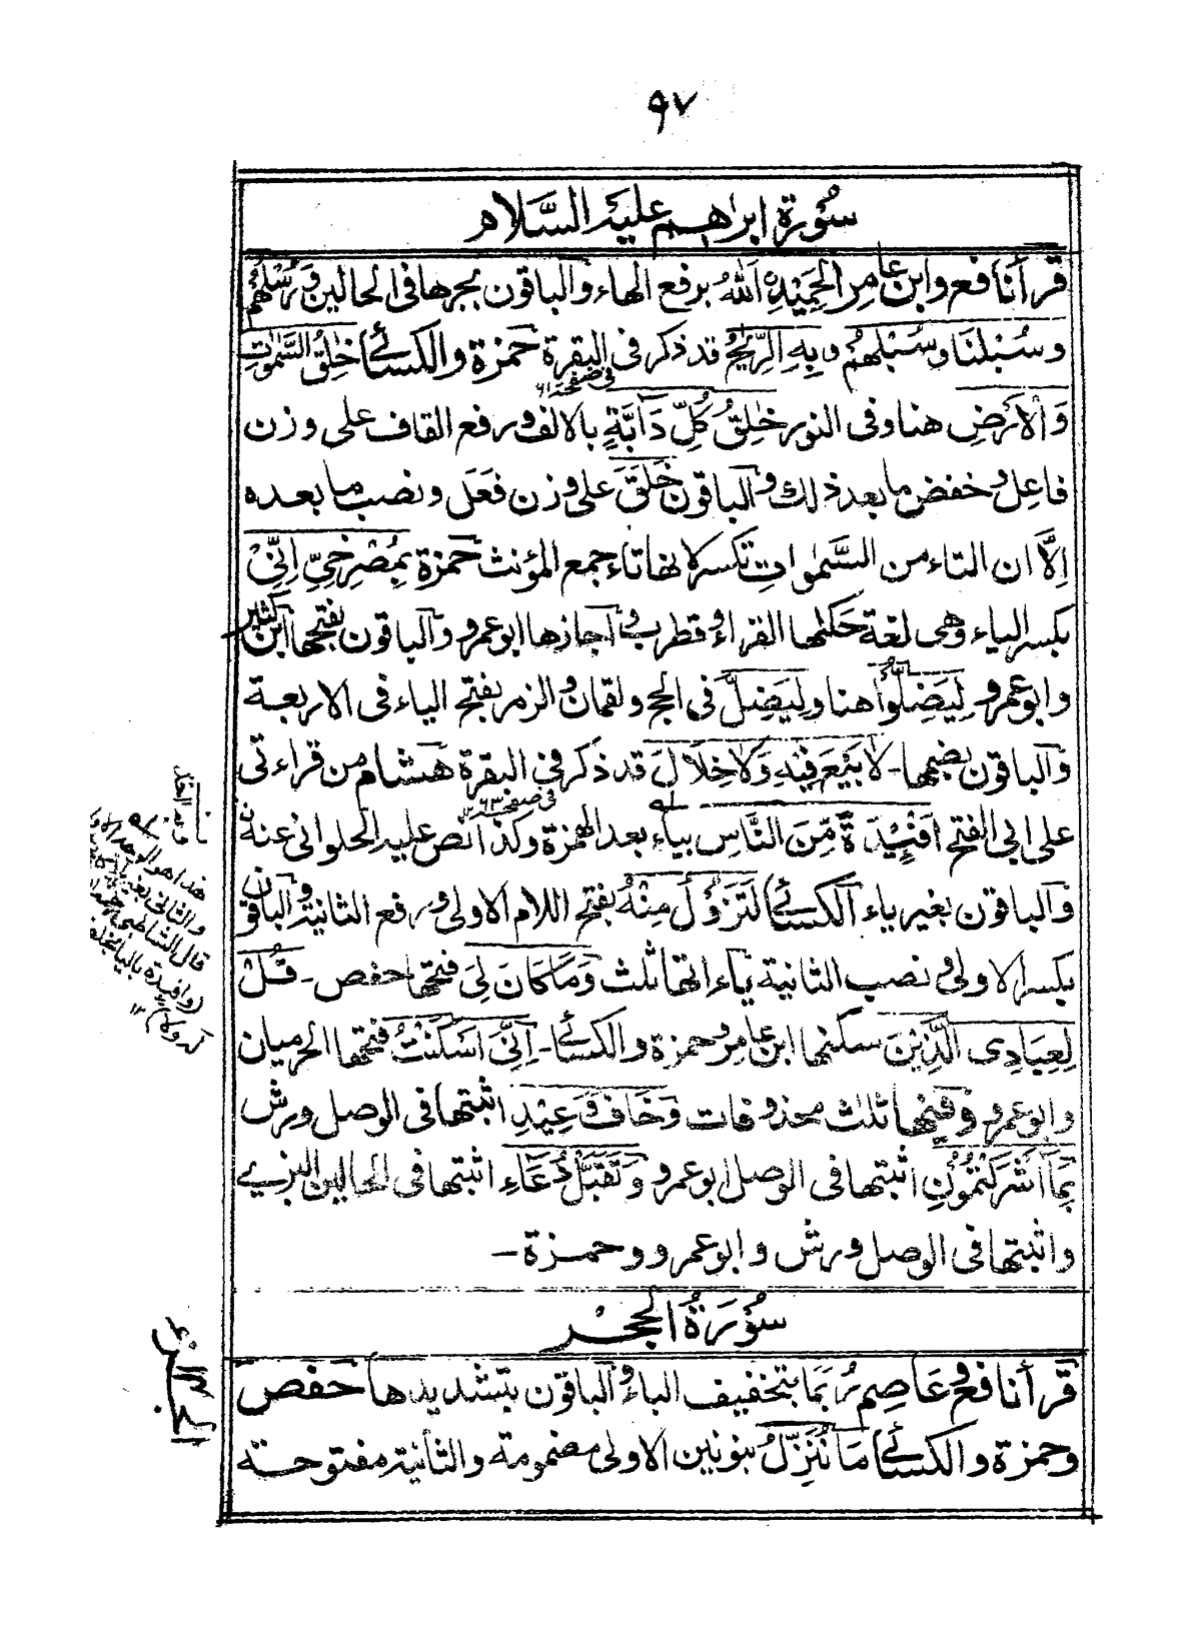 ٩٧
سُوْرَة ابرٰهيم عليه السَّلام
قرأ نافع وابن عامر الحَمِيْدِ اللهُ برفع الهاء والباقون بجرها فى الحالين وَرُسُلُهُمْ
وسُبُلَنَا وسُبُلَهُمْ وبِهِ الرِّيْحُ قد ذكر فى البقرة حمزة والكسائى خٰلِقُ السَّمٰوٰتِ
فى صفحة ٦١
وَالْاَرْضِ هنا وفى النور خٰلِقُ كُلِّ دَآبَّةٍ بالالف ورفع القاف على وزن
فاعِل وخفض ما بعد ذلك والباقون خَلَقَ على وزن فَعَلَ ونصب ما بعده
اِلَّا ان التاء من السَّمٰوات تكسر لانها تاء جمع المؤنث حمزة بِمُصْرِخِيِّ اِنِّىْ
بكسر الياء وهى لغة حكٰها الفراء وقطرب واجازها ابو عمرو والباقون بفتحها ابن كثير
وابو عمرو لِيَضِلُّوْا هنا ولِيَضِلَّ فى الحج ولقمان والزمر بفتح الياء فى الاربعة
والباقون بضمها۔ لَا بَيْعَ فِيْهِ وَلَا خِلَالَ قد ذكر فى البقرة هشام من قراءتى
فى صفحة ٦٣
على ابى الفتح اَفْئِيْدَةً مِّنَ النَّاسِ بياء بعد الهمزة وكذا نص عليه الحلوانى عنه
والباقون بغير ياء الكسائى لَتَزُوْلُ مِنْهُ بفتح اللام الاولى ورفع الثانية والباقون
بكسر الاولى ونصب الثانية ياء اتها ثلث وَمَا كَانَ لِىَ فتحها حفص۔ قُلْ
لِعِبَادِى الَّذِيْنَ سكنها ابن عامر وحمزة والكسائى۔ اِنِّىْ اَسْكَنْتُ فتحها الحرميان
وابو عمرو وفيها ثلٰث محذوفات وَخَافَ وَعِيْدِ اثبتها فى الوصل ورش
بِمَا اَشْرَكْتُمُوْنِ اثبتها فى الوصل ابو عمرو وَتَقَبَّلْ دُعَاءِ اثبتها فى الحالين البزى
واثبتها فى الوصل ورش وابو عمرو وحمزة۔
سُوْرَةُ الْحِجْر
قرأ نافع وعَاصِم رُبَمَا بتخفيف الباء والباقون بتشديدها حفص
وحمزة والكسائى مَا نُنَزِّلُ بنونين الاولى مضمومة والثانية مفتوحة
هذا هو الوجه
والثانى بغير
قال الشاطبى